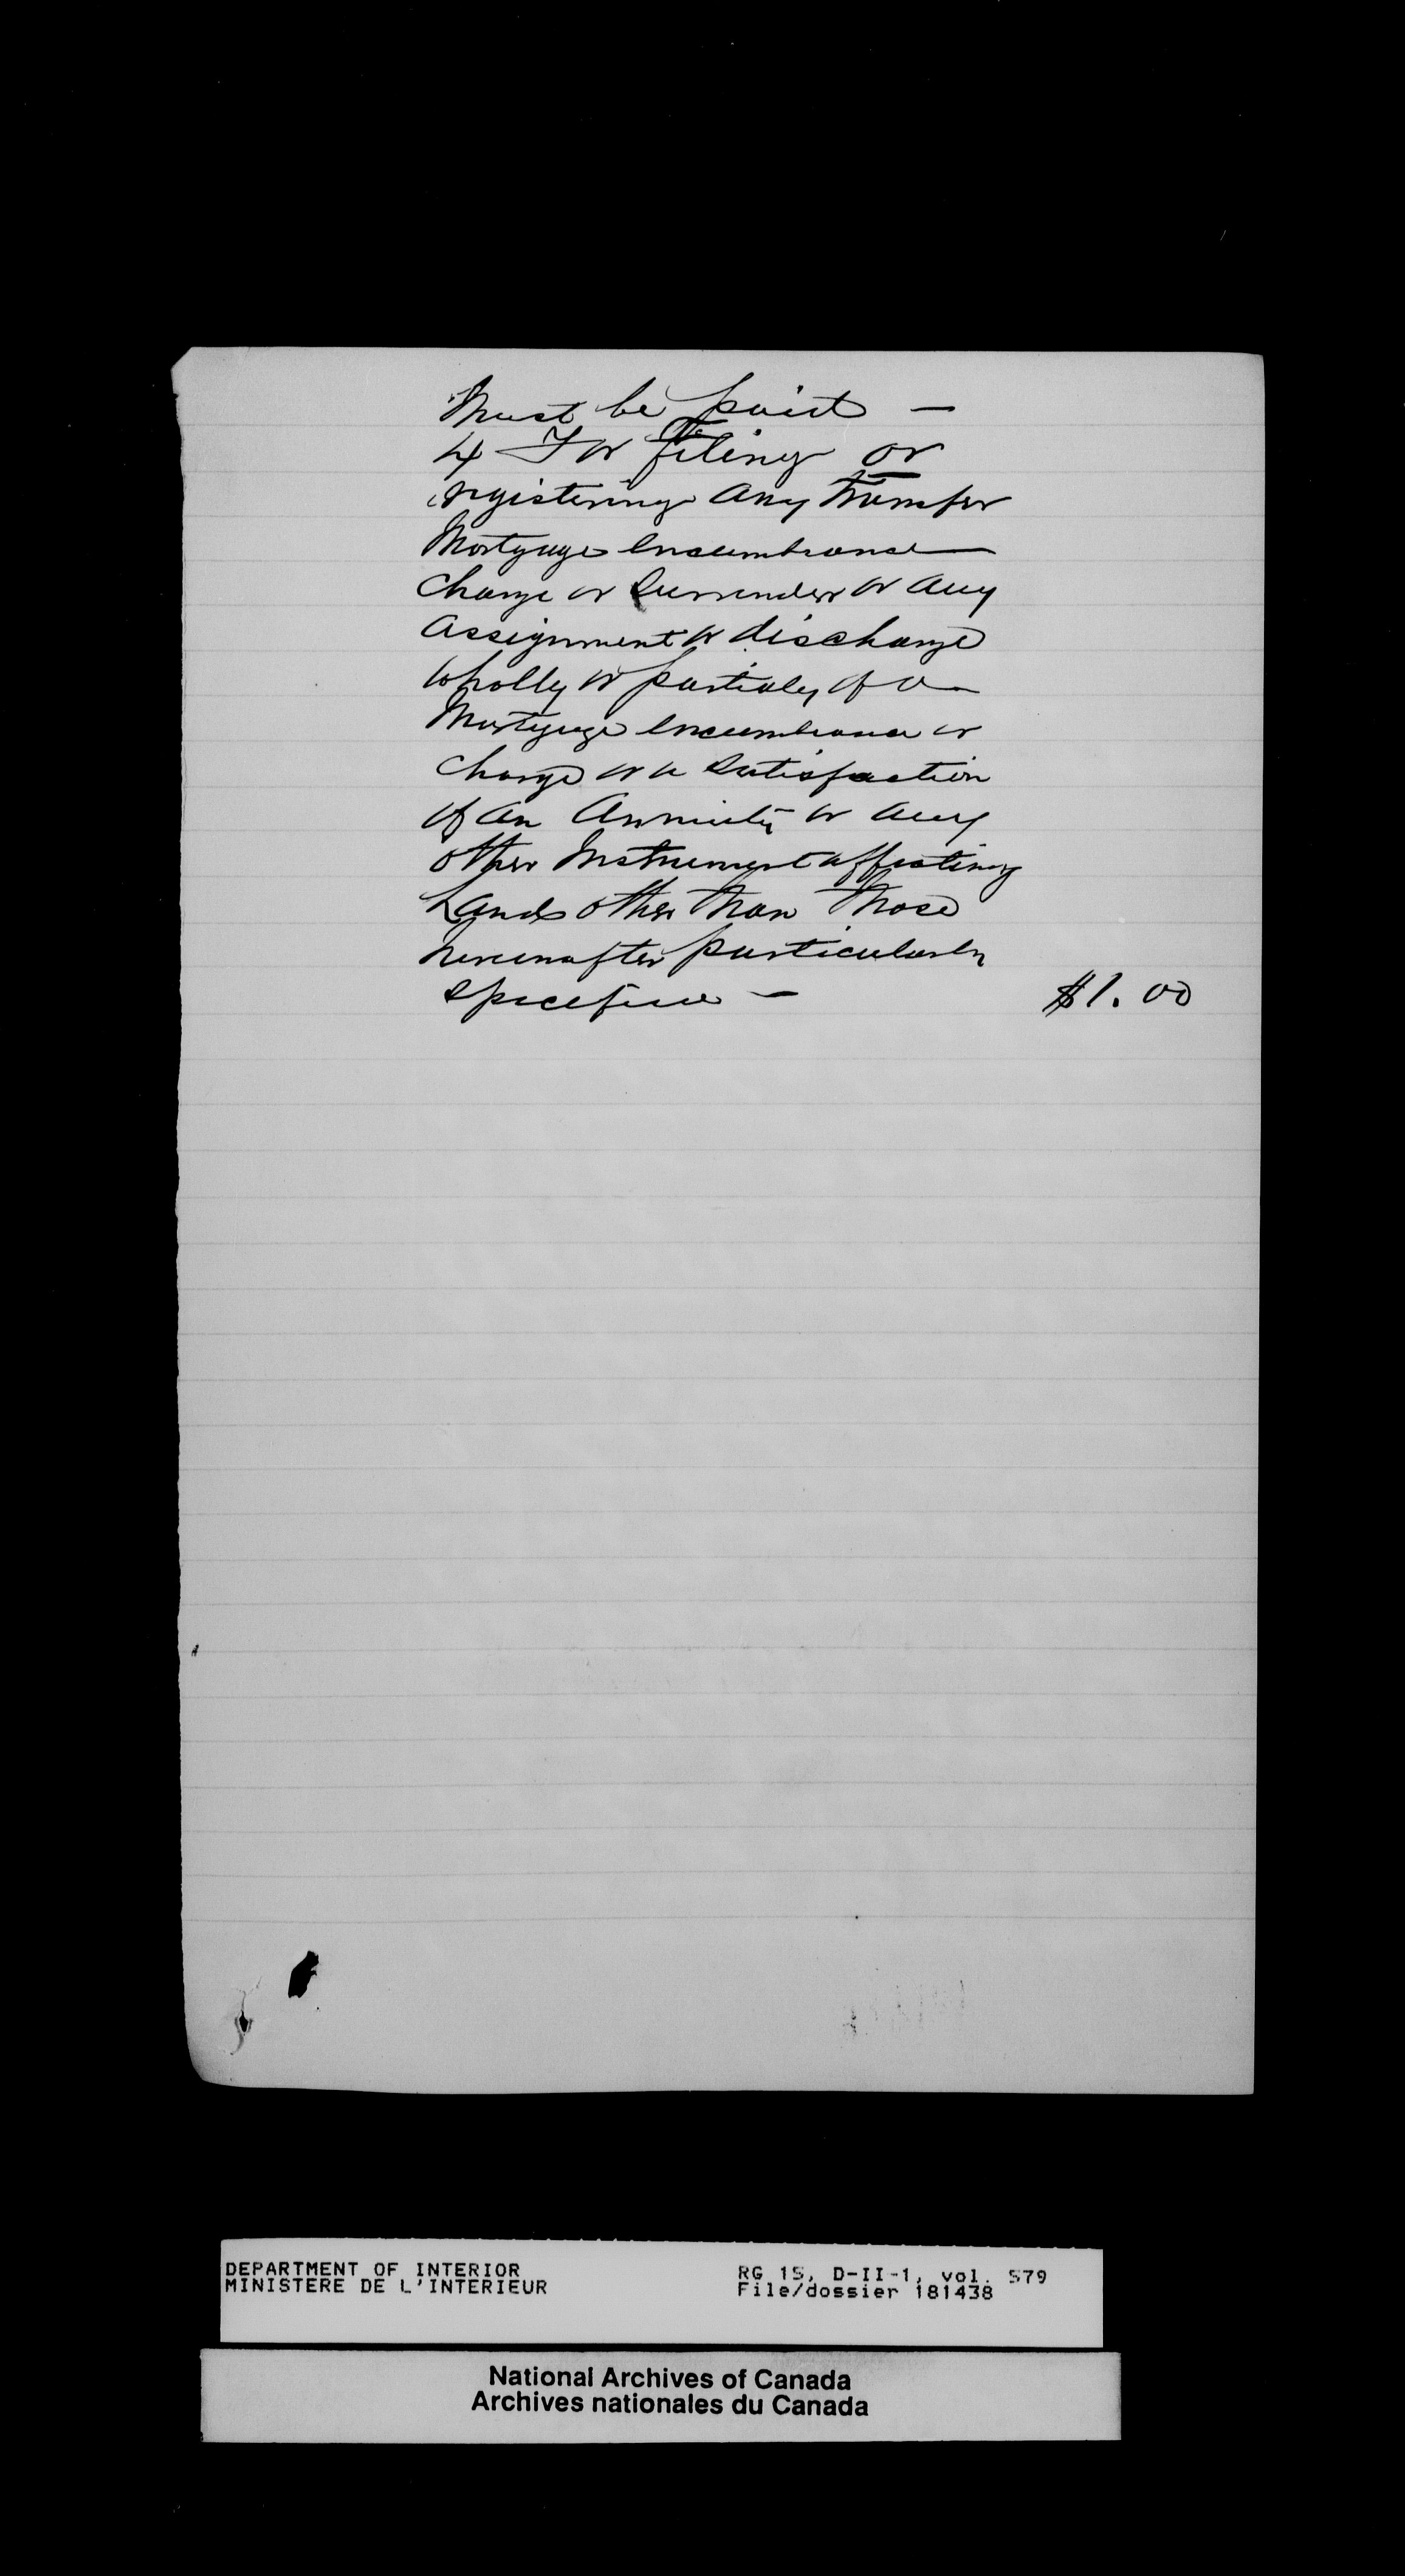 Must be paid —
4 For filing or
registering any transfer
Mortgage Encumbrance
Charge or Surrender or any
Assignment or discharge
wholly or partialy of a
Mortgage Encumbrance or
Charge or a Satisfaction
of an Annuity or any
other Instrument affecting
Lands other than those
hereinafter particularly
specified — $1.00
DEPARTMENT OF INTERIOR
MINISTERE DE L'INTERIEUR
RG 15, D-II-1, vol. 579
File/dossier 181438
National Archives of Canada
Archives nationales du Canada